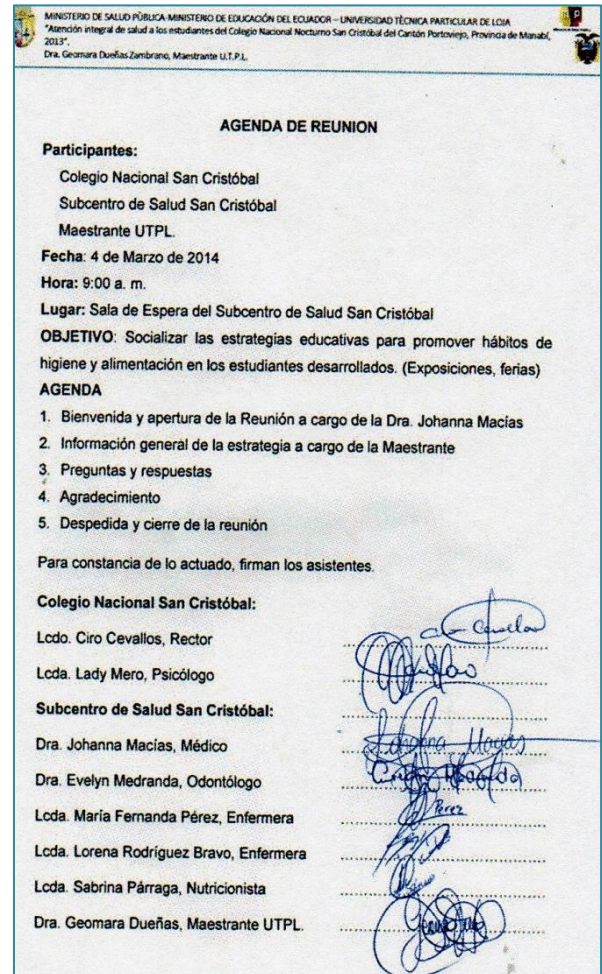 MINISTERIO DE SALUD PÚBLICA-MINISTERIO DE EDUCACIÓN DEL ECUADOR – UNIVERSIDAD TÉCNICA PARTICULAR DE LOJA
"Atención integral de salud a los estudiantes del Colegio Nacional Nocturno San Cristóbal del Cantón Portoviejo, Provincia de Manabí,
2013".
Dra. Geomara Dueñas Zambrano, Maestrante U.T.P.L.
AGENDA DE REUNION
Participantes:
Colegio Nacional San Cristóbal
Subcentro de Salud San Cristóbal
Maestrante UTPL.
Fecha: 4 de Marzo de 2014
Hora: 9:00 a. m.
Lugar: Sala de Espera del Subcentro de Salud San Cristóbal
OBJETIVO: Socializar las estrategias educativas para promover hábitos de
higiene y alimentación en los estudiantes desarrollados. (Exposiciones, ferias)
AGENDA
1. Bienvenida y apertura de la Reunión a cargo de la Dra. Johanna Macías
2. Información general de la estrategia a cargo de la Maestrante
3. Preguntas y respuestas
4. Agradecimiento
5. Despedida y cierre de la reunión
Para constancia de lo actuado, firman los asistentes.
Colegio Nacional San Cristóbal:
Lcdo. Ciro Cevallos, Rector
Lcda. Lady Mero, Psicólogo
Subcentro de Salud San Cristóbal:
Dra. Johanna Macías, Médico
Dra. Evelyn Medranda, Odontólogo
Lcda. María Fernanda Pérez, Enfermera Perez
Lcda. Lorena Rodríguez Bravo, Enfermera
Lcda. Sabrina Párraga, Nutricionista
Dra. Geomara Dueñas, Maestrante UTPL.